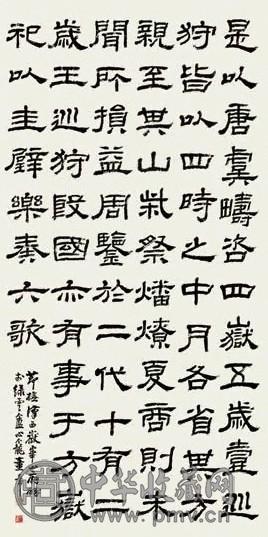 是以唐虞疇咨四嶽五歲壹巡
狩皆以四時之中月各省其方
親至其山柴祭燔燎夏商則未
聞所損益周鑒於二代十有二
歲王巡狩殷國亦有事于方嶽
祀以圭璧樂奏六歌
節臨漢西嶽華山廟碑
中华收藏网
www.pmv.cn